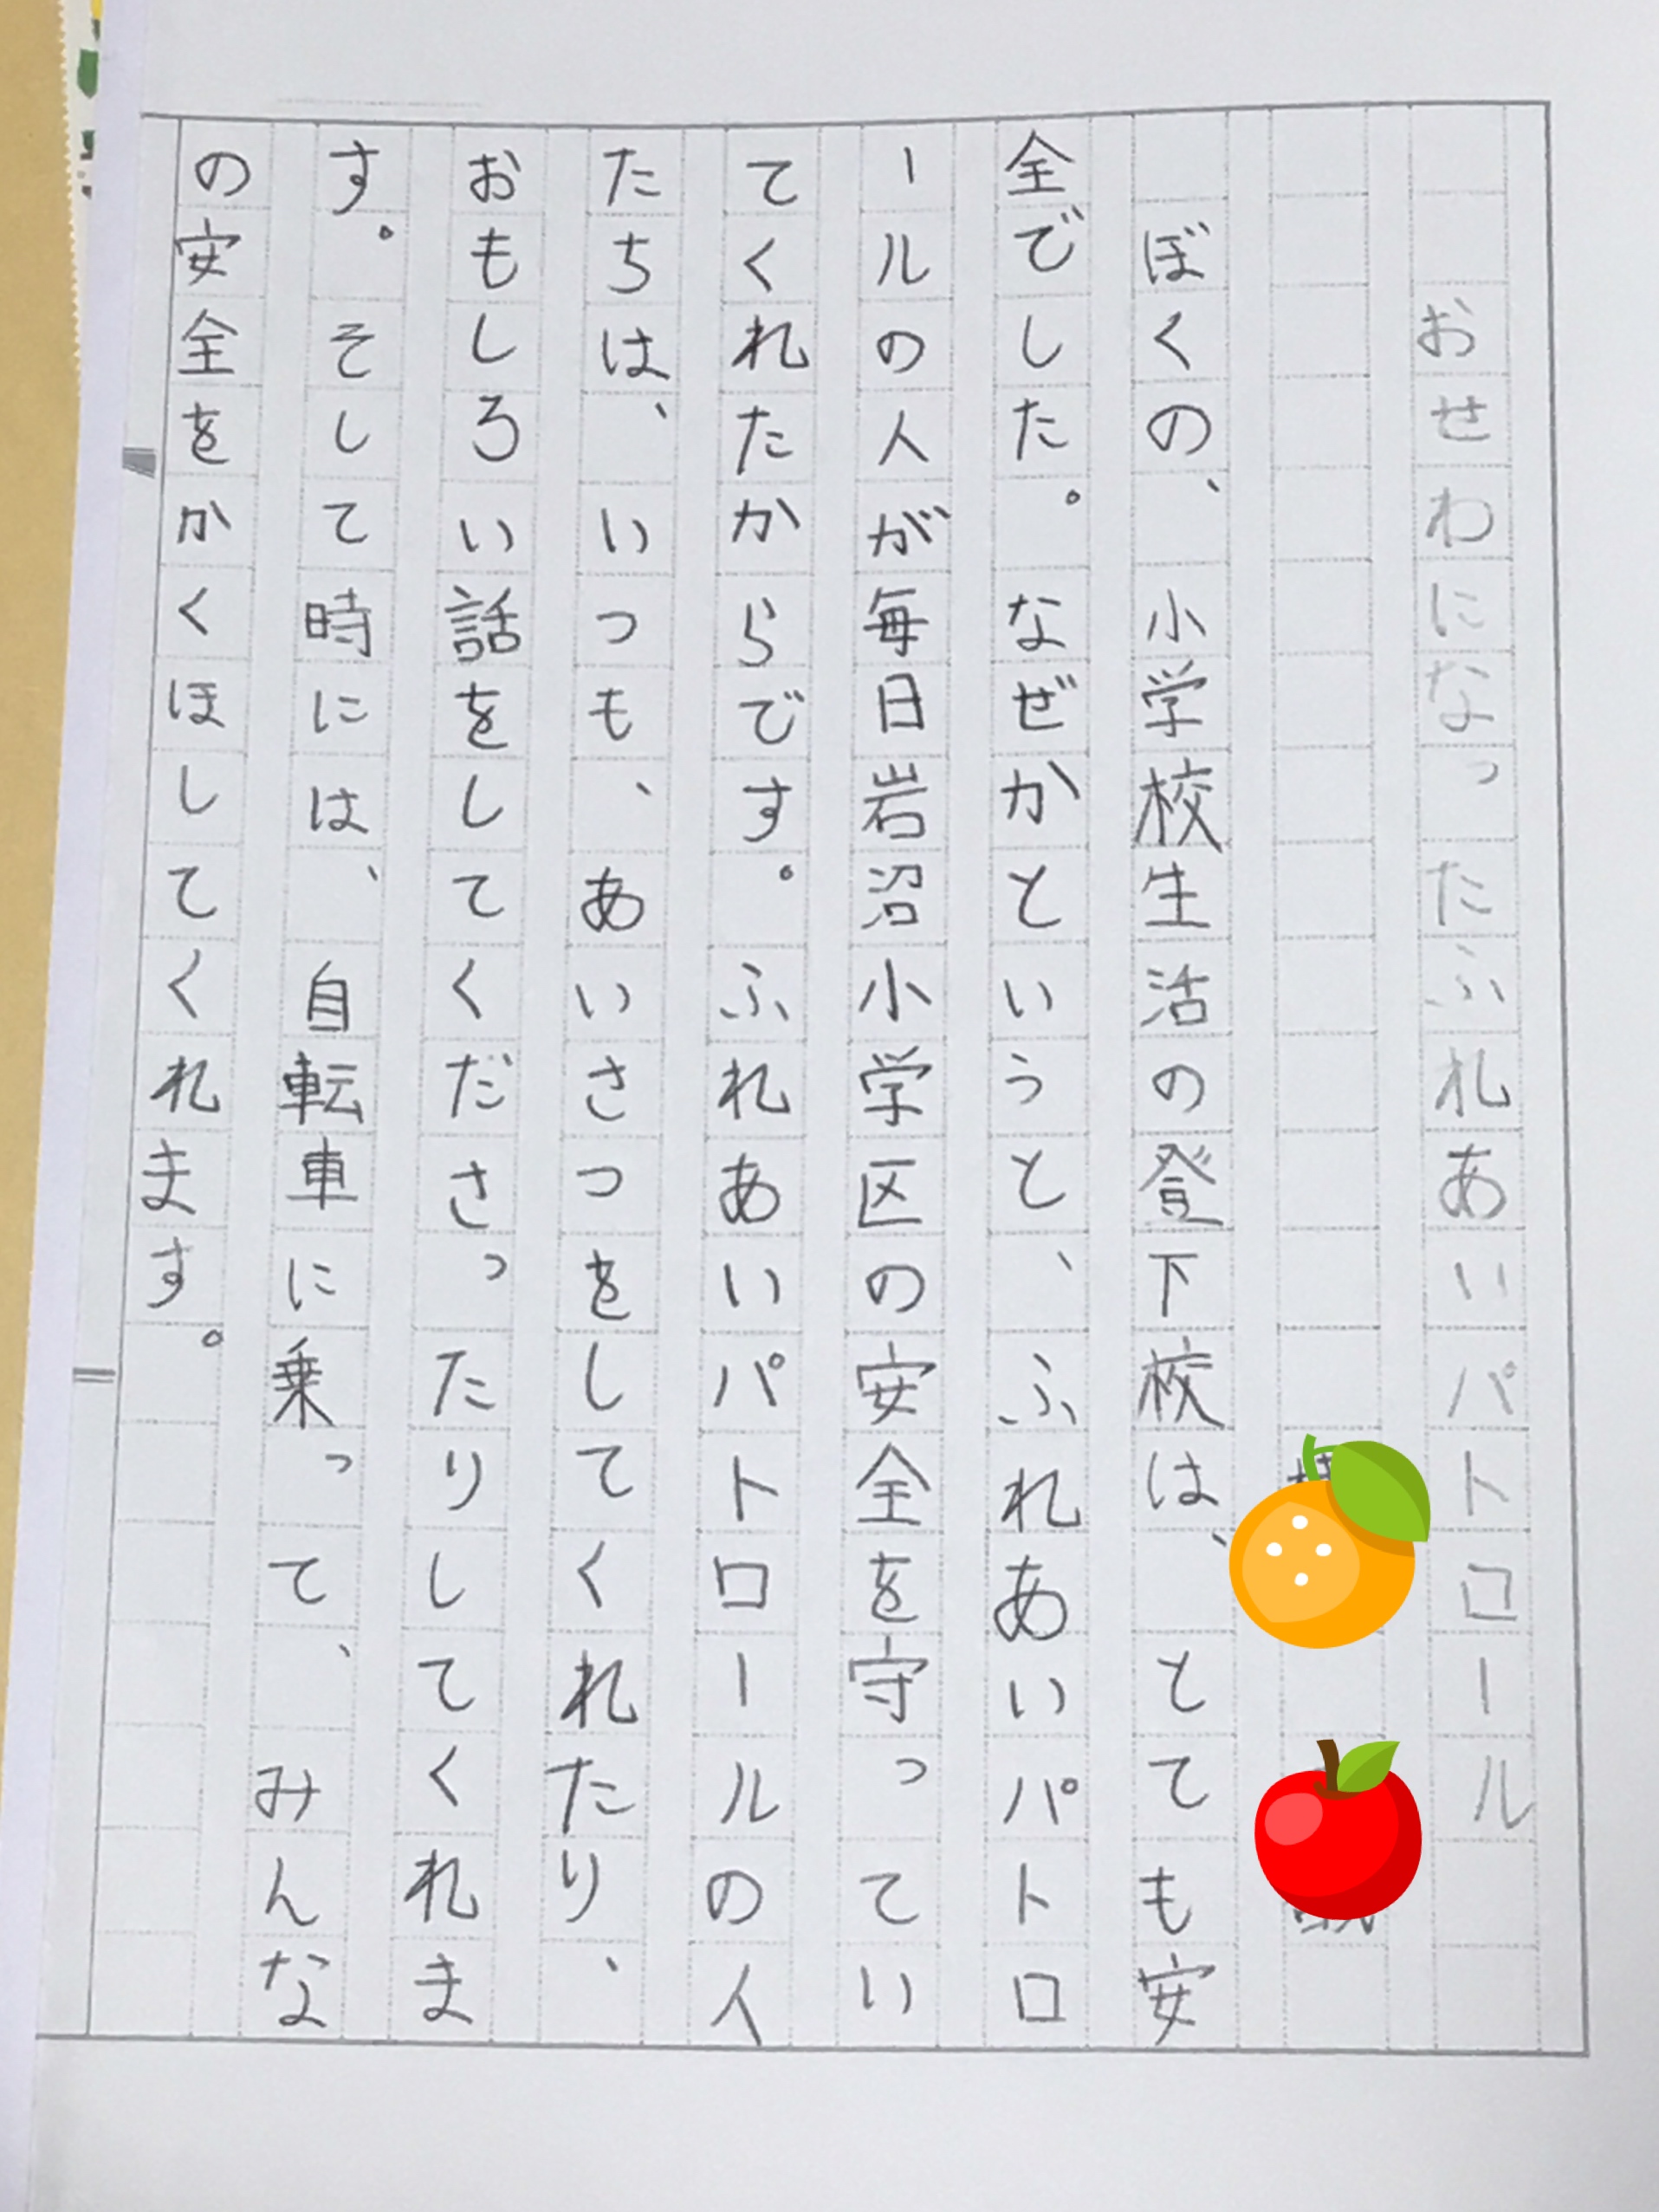 おせわになったふれあいパトロール
ぼくの、小学校生活の登下校は、とても安
全でした。なぜかというと、ふれあいパトロ
ールの人が毎日岩沼小学区の安全を守ってい
てくれたからです。ふれあいパトロールの人
たちは、いつも、あいさつをしてくれたり、
おもしろい話をしてくださったりしてくれま
す。そして時には、自転車に乗って、みんな
の安全をかくほしてくれます。